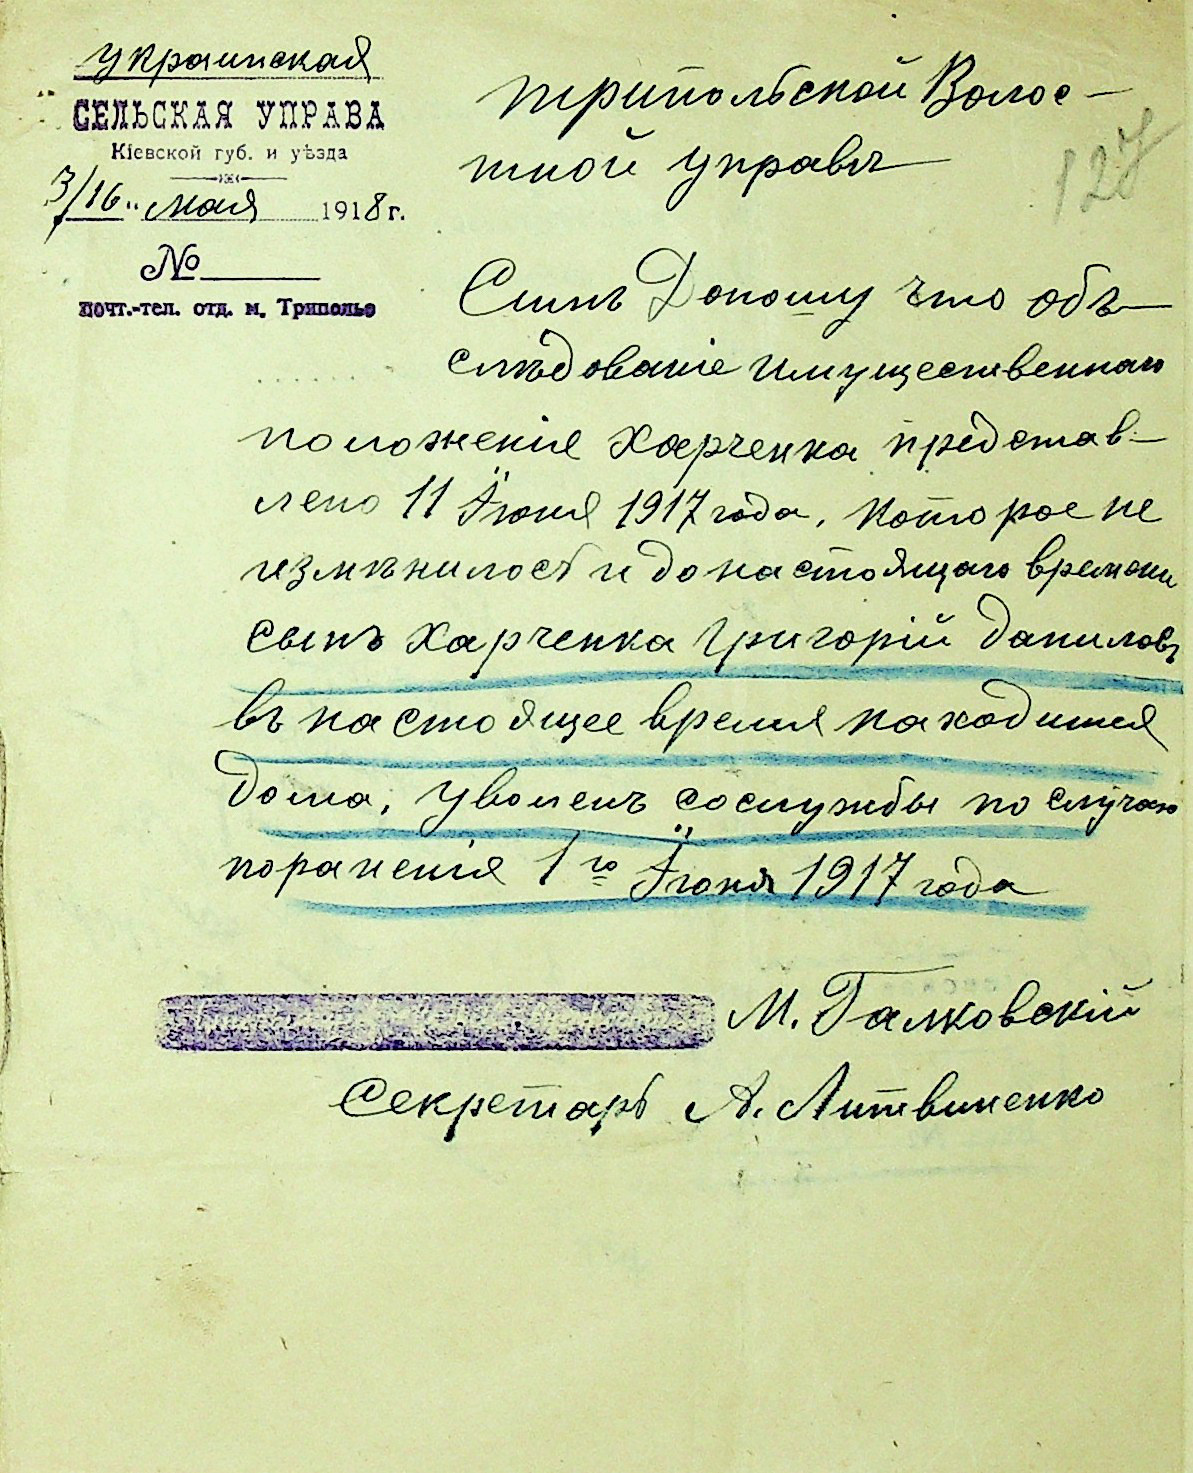 украинская
СЕЛЬСКАЯ УПРАВА
Кіевской губ. и уѣзда
3/16 „ мая 1918 г.
№
почт.-тел. отд. м. Триполье
127
Трипольской Волос-
тной управѣ
Симъ Доношу что объ-
слѣдованіе имущественнаго
положенія Харченка представ-
лено 11 Іюня 1917 года, которое не
измѣнилось и до настоящаго времени
сынъ Харченка Григорій Даниловъ
въ настоящее время находится
дома, уволенъ со службы по случаю
пораненія 1го Іюня 1917 года
М. Галковскій
Секретарь А. Литвиненко